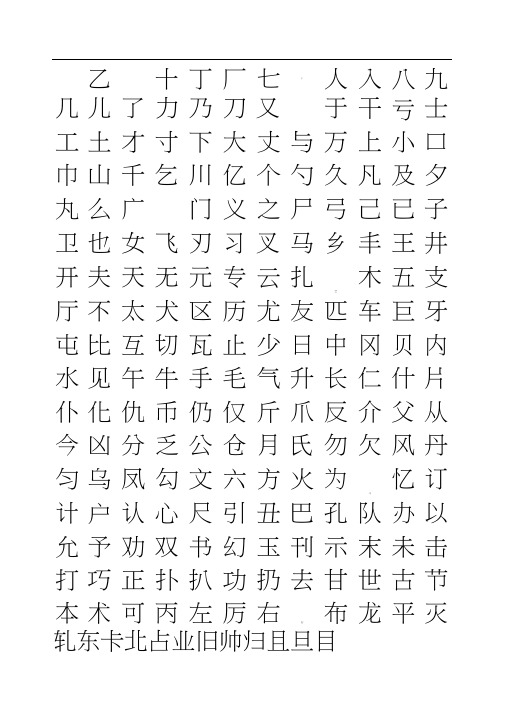 乙 十 丁 厂 七 人 入 八 九
几 儿 了 力 乃 刀 又 于 干 亏 士
工 土 才 寸 下 大 丈 与 万 上 小 口
巾 山 千 乞 川 亿 个 勺 久 凡 及 夕
丸 么 广 门 义 之 尸 弓 己 已 子
卫 也 女 飞 刃 习 叉 马 乡 丰 王 井
开 夫 天 无 元 专 云 扎 木 五 支
厅 不 太 犬 区 历 尤 友 匹 车 巨 牙
屯 比 互 切 瓦 止 少 日 中 冈 贝 内
水 见 午 牛 手 毛 气 升 长 仁 什 片
仆 化 仇 币 仍 仅 斤 爪 反 介 父 从
今 凶 分 乏 公 仓 月 氏 勿 欠 风 丹
匀 乌 凤 勾 文 六 方 火 为 忆 订
计 户 认 心 尺 引 丑 巴 孔 队 办 以
允 予 劝 双 书 幻 玉 刊 示 末 未 击
打 巧 正 扑 扒 功 扔 去 甘 世 古 节
本 术 可 丙 左 厉 右 布 龙 平 灭
轧东卡北占业旧帅归且旦目